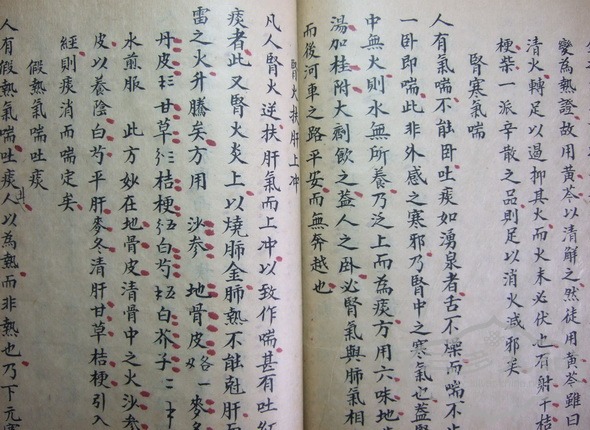 變為熱證故用黃芩以清解之然徒用黃芩雖曰
清火轉足以遏抑其火而火未必伏也有射干桔
梗柴一派辛散之品則足以消火滅邪矣
腎寒氣喘
人有氣喘不能卧吐痰如湧泉者舌不燥而喘不
一卧即喘此非外感之寒邪乃腎中之寒氣也蓋腎
中無火則水無所養乃泛上而為痰方用六味地
湯加桂附大劑飲之蓋人之卧必腎氣與肺氣相
而後河車之路平安而無奔越也
腎火扶肝上冲
凡人腎火逆扶肝氣而上冲以致作喘甚有吐紅
痰者此又腎火炎上以燒肺金肺熱不能尅肝
雷之火升騰矣方用 沙參 地骨皮各一麥
丹皮 甘草 桔梗 白芍 白芥子二
水煎服 此方妙在地骨皮清骨中之火沙參
皮以養陰白芍平肝麥冬清肝甘草桔梗引入
經則痰消而喘定矣
假熱氣喘吐痰
人有假熱氣喘吐痰人以為熱而非熱也乃下元寒